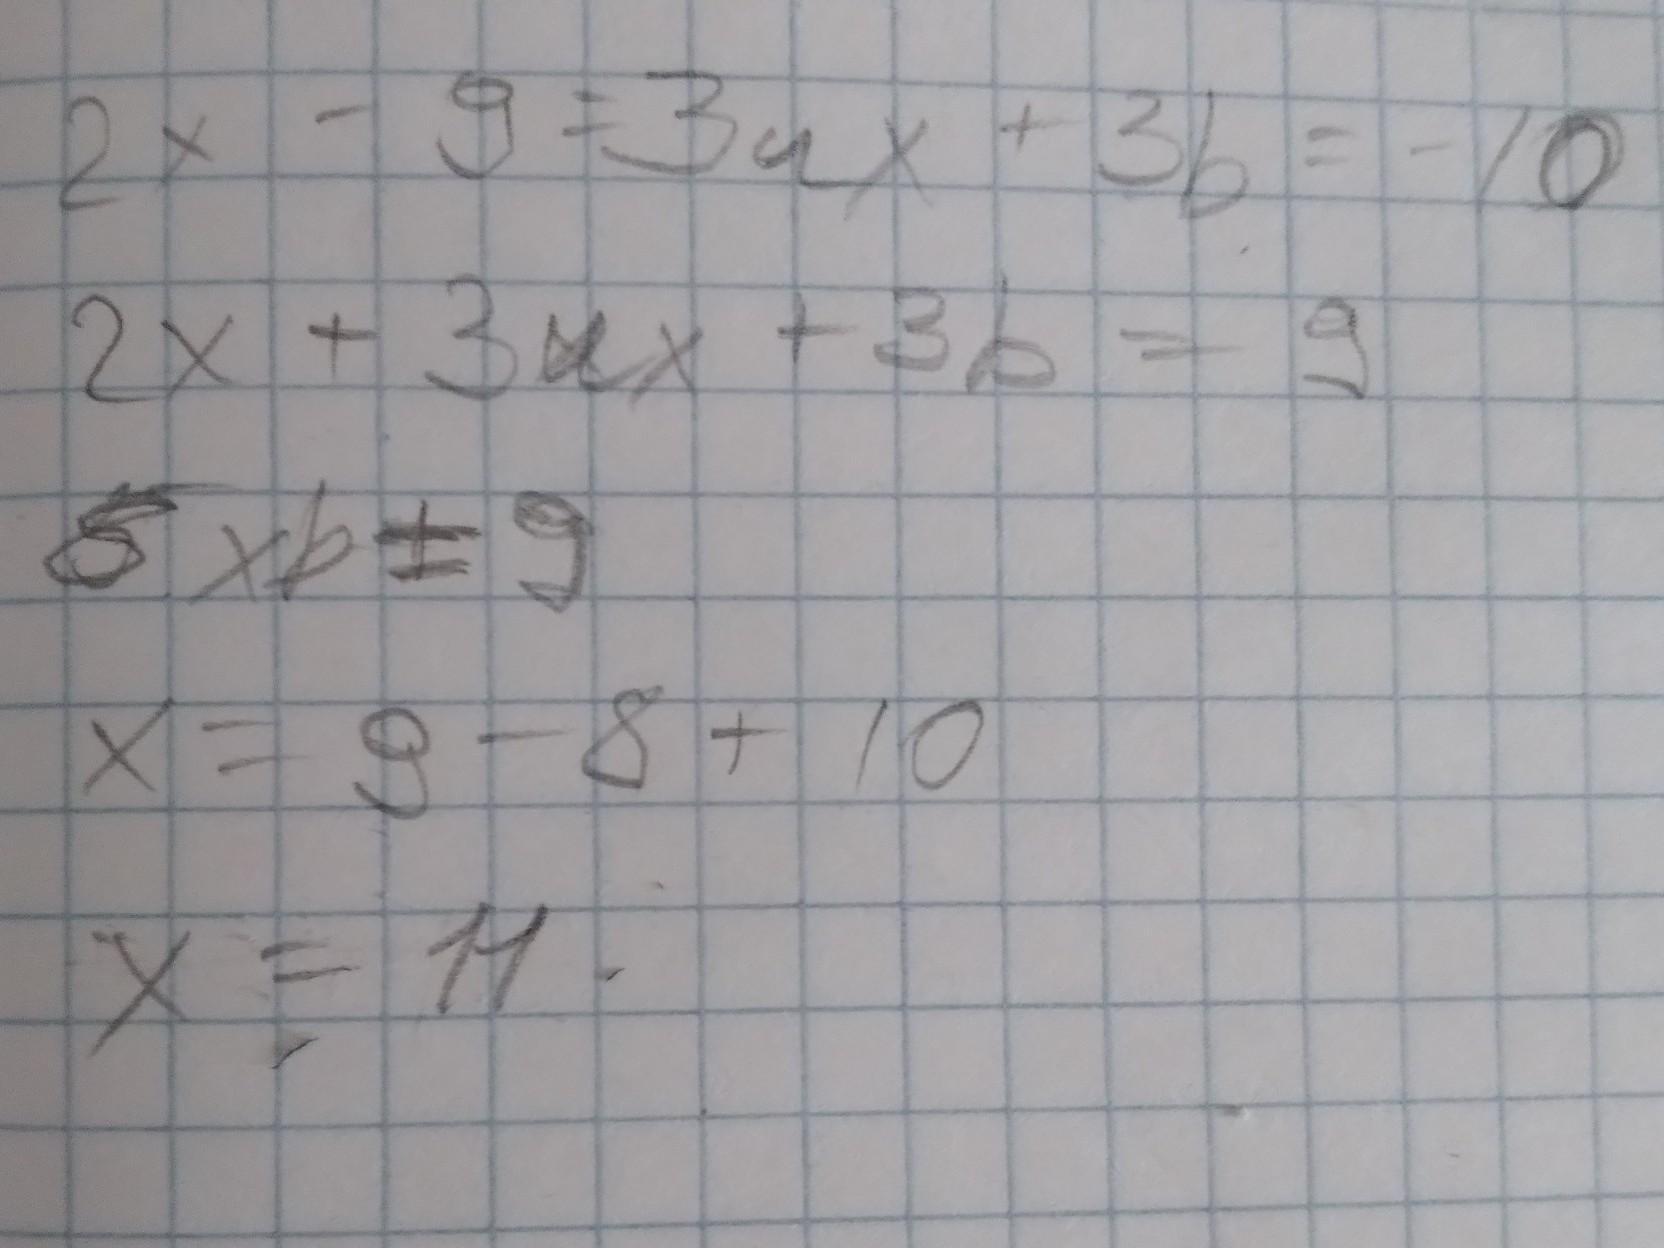 2x - 9 = 3ux + 3b = -10
2x + 3ux + 3b = 9
5xb ± 9
x = 9 - 8 + 10
x = 11.